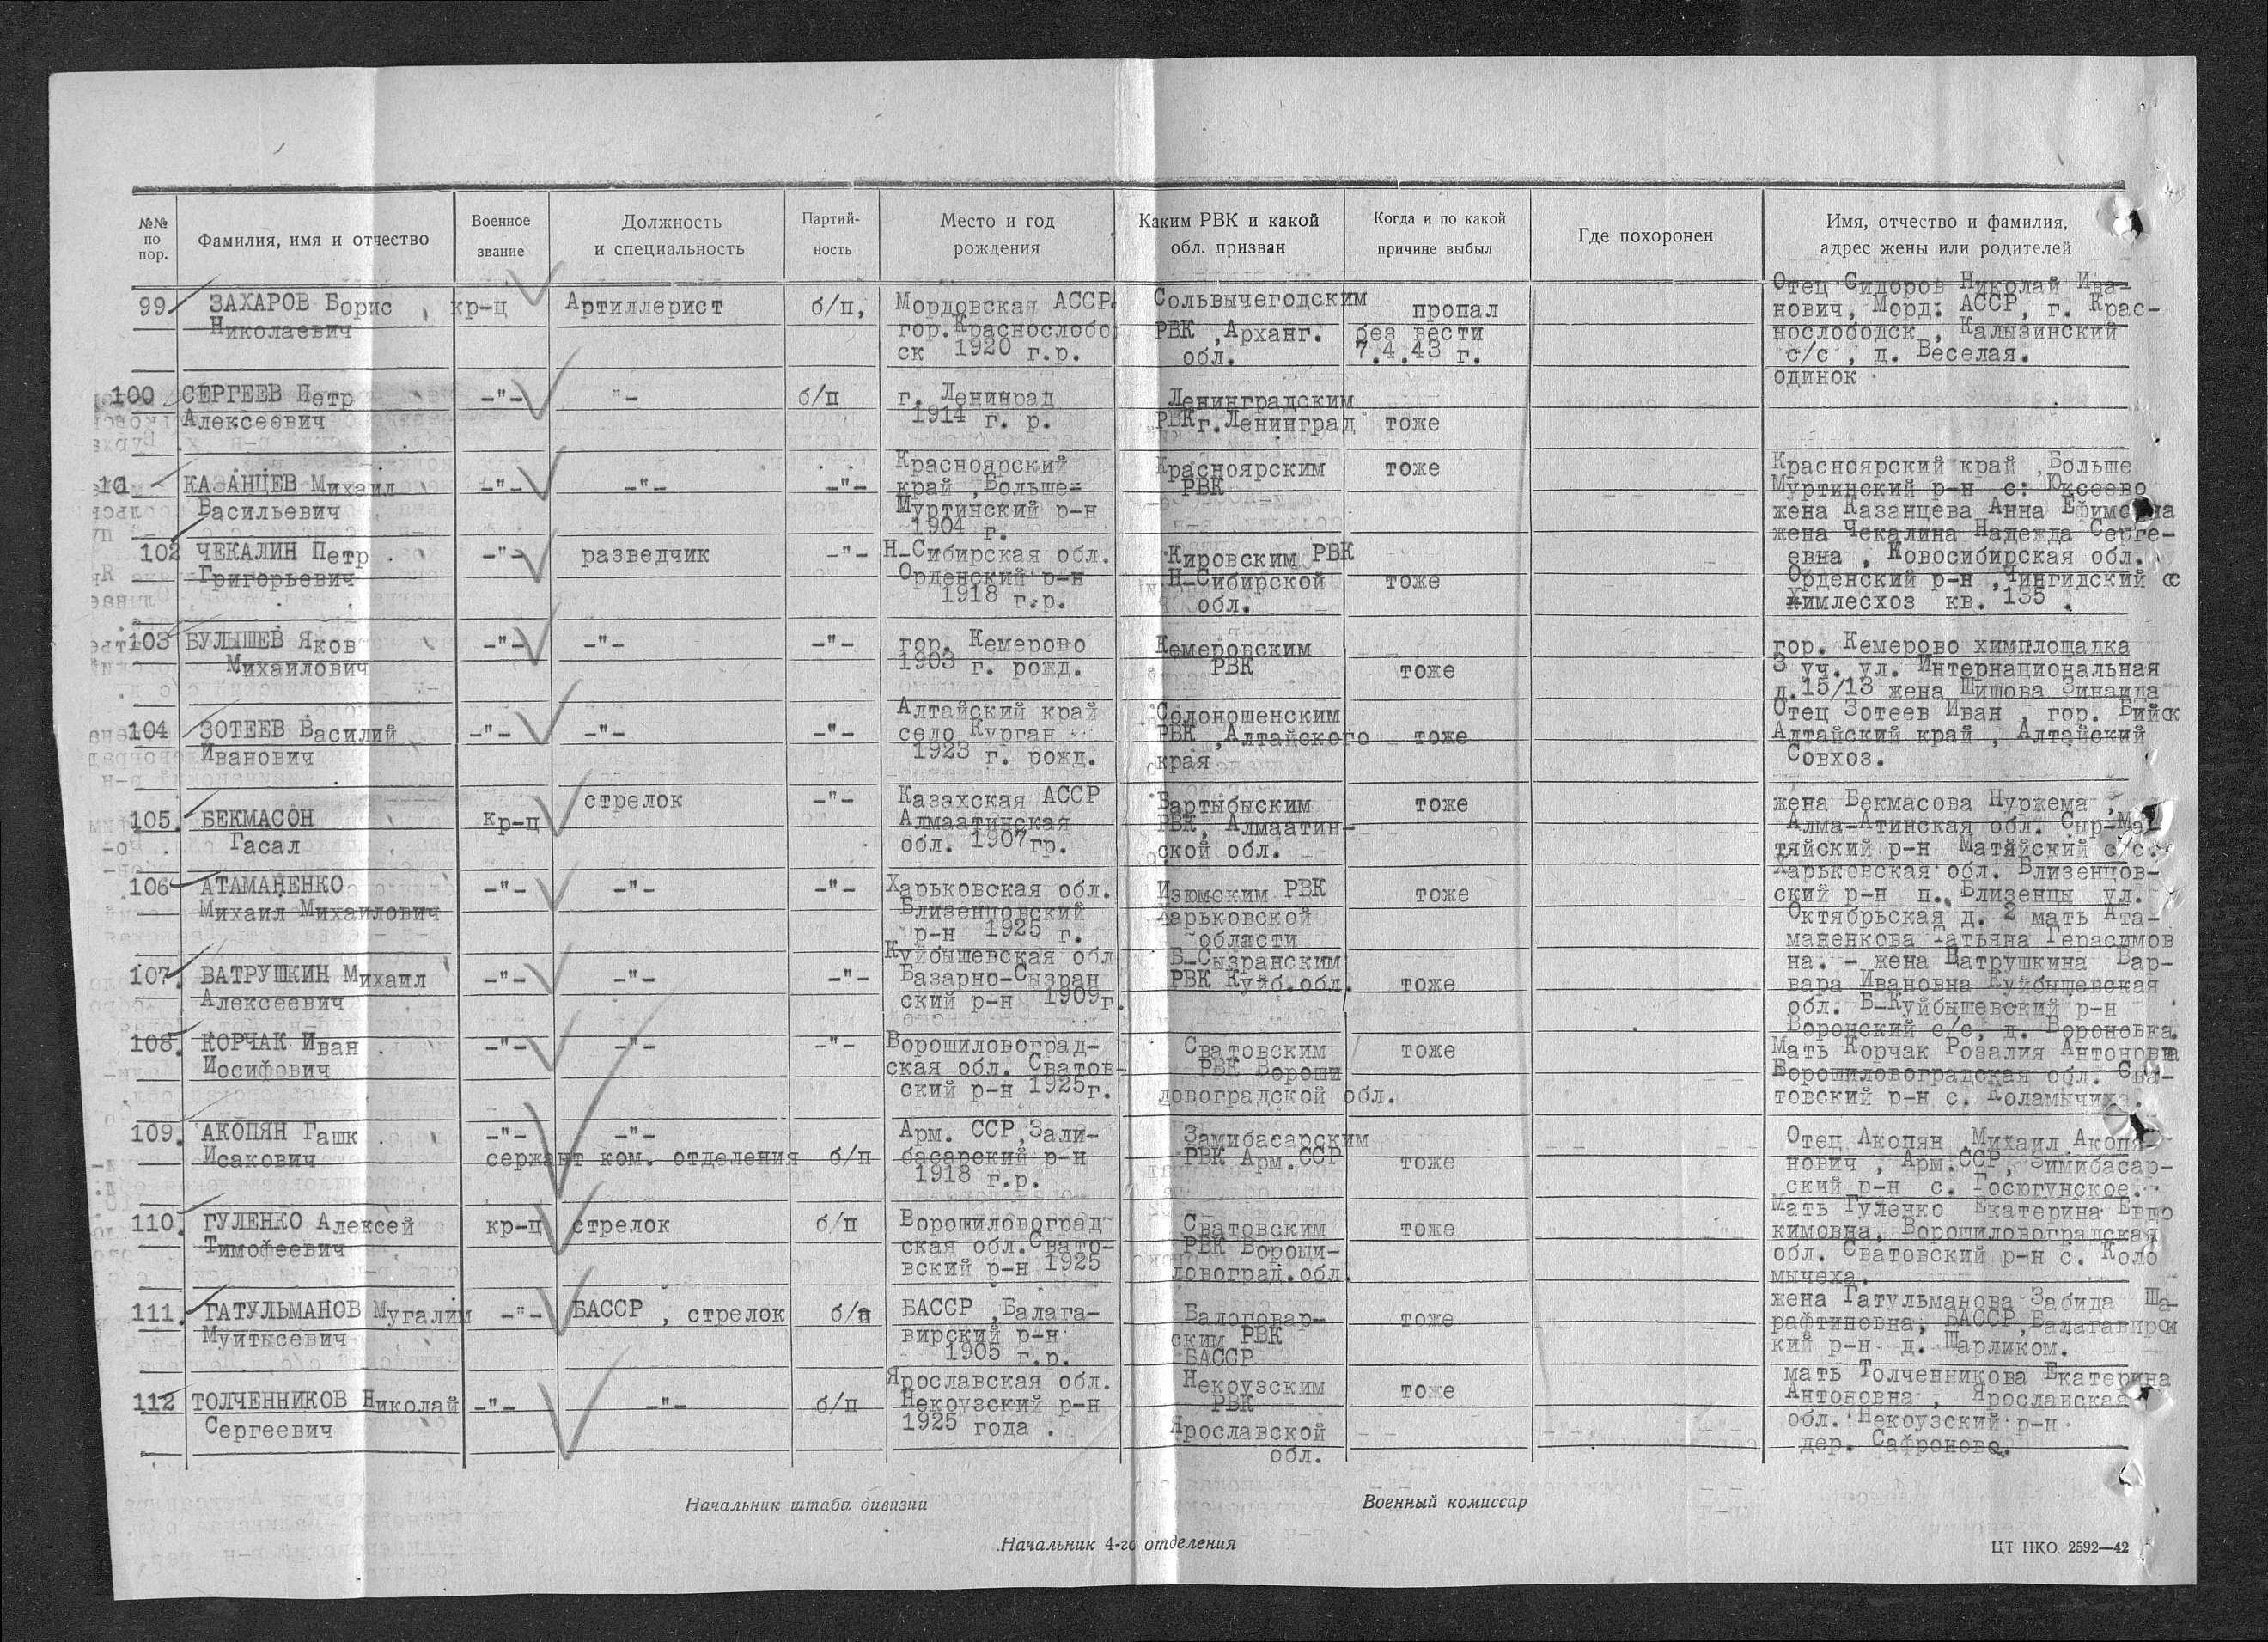 №№ по пор. Фамилия, имя и отчество Военное звание Должность и специальность Партий-ность Место и год рождения Каким РВК и какой обл. призван Когда и по какой причине выбыл Где похоронен Имя, отчество и фамилия, адрес жены или родителей
99 ЗАХАРОВ Борис
Николаевич
кр-ц
Артиллерист
б/п,
Мордовская АССР.
гор.Краснослобо
ск 1920 г.р.
Сольвычегодским
РВК ,Арханг.
обл.
пропал
без вести
7.4.43 г.
Отец Сидоров Николай Ива-
нович, Морд: АССР, г. Крас-
нослободск , Калызинский
с/с , д. Веселая.
100 СЕРГЕЕВ Петр
Алексеевич
-"-
"-
б/п
г. Ленинрад
1914 г. р.
Ленинградским
РВКг.Ленинград
тоже
одинок
КАЗАНЦЕВ Михаил
Васильевич
-"-
-"-
-"-
Красноярский
край ,Больше-
Муртинский р-н
1904 г.
Красноярским
РВК
тоже
Красноярский край ,Больше
Муртинский р-н с: Юксеево
жена Казанцева Анна
102 ЧЕКАЛИН Петр
Григорьевич
-"-
разведчик
-"-
Н-Сибирская обл.
Орденский р-н
1918 г.р.
Кировским РВК
Н-Сибирской
обл.
тоже
жена Чекалина Надежда Серге-
евна , Новосибирская обл.
Орденский р-н ,Чингидский
Химлесхоз кв. 135 .
103 БУЛЫШЕВ Яков
Михаилович
-"-
-"-
-"-
гор. Кемерово
1903 г. рожд.
Кемеровским
РВК
тоже
гор. Кемерово химплощадка
3 уч. ул. Интернациональная
д.15/13 жена Шишова Зинаида
104 ЗОТЕЕВ Василий
Иванович
-"-
-"-
-"-
Алтайский край
село Курган
1923 г. рожд.
Солоношенским
РВК ,Алтайского
края
тоже
Отец Зотеев Иван гор. Бийск
Алтайский край , Алтайский
Совхоз.
105. БЕКМАСОН
Гасал
кр-ц
стрелок
-"-
Казахская АССР
Алмаатинская
обл. 1907гр.
Бартыбыским
РВК, Алмаатин-
ской обл.
тоже
жена Бекмасова Нуржема ,
Алма-Атинская обл. Сыр-Ма-
тяйский р-н Матяйский с/с.
106 АТАМАНЕНКО
Михаил Михаилович
-"-
-"-
-"-
Харьковская обл.
Близенцовский
р-н 1925 г.
Изюмским РВК
Харьковской
области
тоже
Харьковская обл. Близенцов-
ский р-н п. Близенцы ул.
Октябрьская д. 2 мать Ата-
маненкова Татьяна Герасимов
на. -
107. ВАТРУШКИН Михаил
Алексеевич
-"-
-"-
-"-
Куйбышевская обл
Базарно-Сызран
ский р-н 1909г.
Б-Сызранским
РВК Куйб.обл.
тоже
жена Ватрушкина Вар-
вара Ивановна Куйбышевская
обл. Б-Куйбышевский р-н
Воронский с/с, д. Вороновка.
108. КОРЧАК Иван
Иосифович
-"-
-"-
-"-
Ворошиловоград-
ская обл. Сватов-
ский р-н 1925г.
Сватовским
РВК Вороши
ловоградской обл.
тоже
Мать Корчак Розалия Антоновна
Ворошиловоградская обл. Сва-
товский р-н с. Коламычиха.
109. АКОПЯН Гашк
Исакович
-"-
-"-
сержант ком. отделения б/п
Арм. ССР,Зали-
басарский р-н
1918 г.р.
Замибасарским
РВК Арм.ССР
тоже
Отец Акопян Михаил Акопя-
нович , Арм.ССР, Зимибасар-
ский р-н с. Госюгунское.
110. ГУЛЕНКО Алексей
Тимофеевич
кр-ц
стрелок
б/п
Ворошиловоград
ская обл.Свато-
вский р-н 1925
Сватовским
РВК Вороши-
ловоград.обл.
тоже
Мать Гуленко Екатерина Евдо
кимовна, Ворошиловоградская
обл. Сватовский р-н с. Коло
мычеха.
111. ГАТУЛЬМАНОВ Мугалим
Муитысевич
-"-
БАССР , стрелок
б/п
БАССР ,Балага-
вирский р-н
1905 г.р.
Балоговар-
ским РВК
БАССР
тоже
жена Гатульманова Забида Ша-
рафтиновна, БАССР,Балагавирс
кий р-н д. Шарликом.
112 ТОЛЧЕННИКОВ Николай
Сергеевич
-"-
-"-
б/п
Ярославская обл.
Некоузский р-н
1925 года .
Некоузским
РВК
Ярославской
обл.
тоже
мать Толченникова Екатерина
Антоновна , Ярославская
обл. Некоузский р-н
дер. Сафроново.
Начальник штаба дивизии Военный комиссар
Начальник 4-го отделения
ЦТ НКО. 2592—42